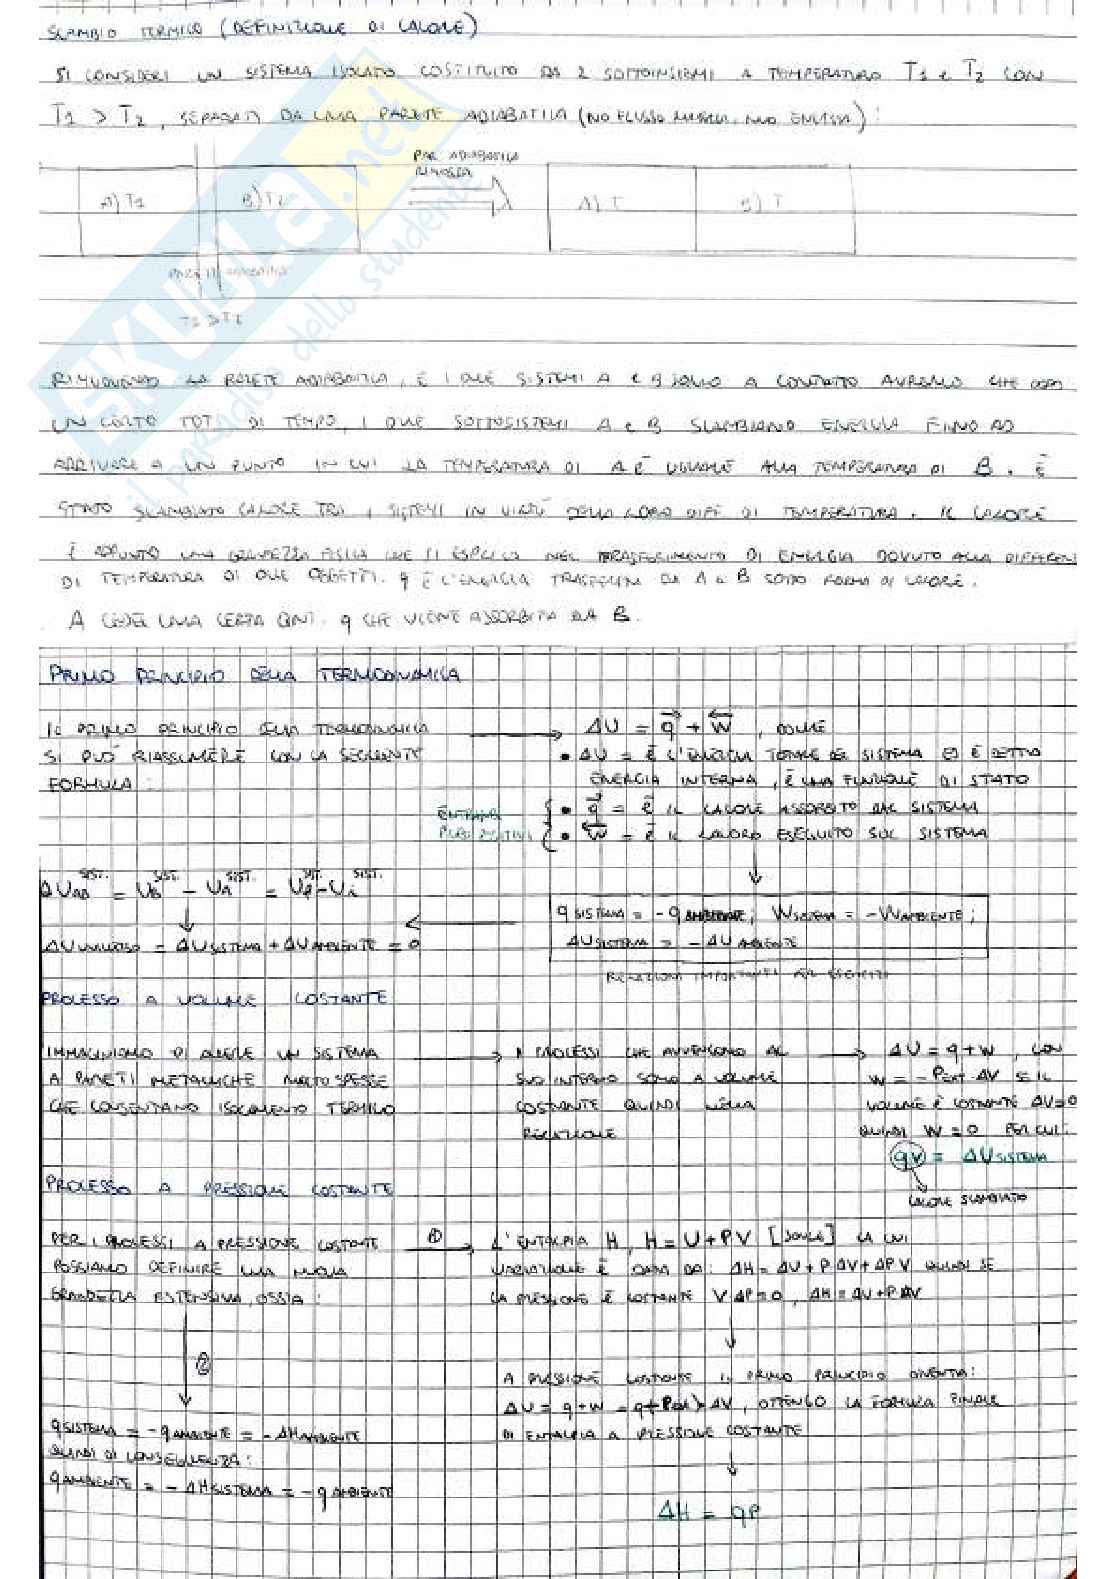 SCAMBIO TERMICO (DEFINIZIONE DI CALORE)
SI CONSIDERI UN SISTEMA ISOLATO COSTITUITO DA 2 SOTTOINSIEMI A TEMPERATURA T1 e T2 CON
T1 > T2, SEPARATI DA UNA PARETE ADIABATICA (NO FLUSSO
PAR. ADIABATICA
RIMOSSA
A) T1
B) T2
A) T
B) T
PARETI ADIABATICA
T1 > T2
RIMUOVENDO LA PARETE ADIABATICA, E I DUE SISTEMI A e B SONO A CONTATTO AVREMO CHE DOPO
UN CERTO TOT DI TEMPO, I DUE SOTTOSISTEMI A e B SCAMBIANO ENERGIA FINO AD
ARRIVARE A UN PUNTO IN CUI LA TEMPERATURA DI A È UGUALE ALLA TEMPERATURA DI B. È
STATO SCAMBIATO CALORE TRA I SISTEMI IN VIRTÙ DELLA LORO DIFF. DI TEMPERATURA. IL CALORE
È APPUNTO UNA GRANDEZZA FISICA CHE SI ESPLICA NEL TRASFERIMENTO DI ENERGIA DOVUTO ALLA DIFFEREN
DI TEMPERATURA DI DUE OGGETTI. q È L'ENERGIA TRASFERITA DA A a B SOTTO FORMA DI CALORE.
A CEDE UNA CERTA QNT. q CHE VIENE ASSORBITA DA B.
SKUOLA.net
il paradiso dello studente
PRIMO PRINCIPIO DELLA TERMODINAMICA
IL PRIMO PRINCIPIO DELLA TERMODINAMICA
SI PUÒ RIASSUMERE CON LA SEGUENTE
FORMULA:
ΔU = q + w, DOVE
• ΔU = È L'ENERGIA TOTALE DEL SISTEMA ED È DETTA
ENERGIA INTERNA, È UNA FUNZIONE DI STATO
• q = È IL CALORE ASSORBITO DAL SISTEMA
• W = È IL LAVORO ESEGUITO SUL SISTEMA
ENTRAMBI
POSITIVI
ΔU AB SIST. = UB SIST. - UA SIST. = Uf SIST. - Ui SIST.
ΔU UNIVERSO = ΔU SISTEMA + ΔU AMBIENTE = 0
q SISTEMA = -q AMBIENTE; W SISTEMA = -W AMBIENTE;
ΔU SISTEMA = -ΔU AMBIENTE
RELAZIONI IMPORTANTI PER ESERCIZI
PROCESSO A VOLUME COSTANTE
IMMAGINIAMO DI AVERE UN SISTEMA
A PARETI METALLICHE MOLTO SPESSE
CHE CONSENTANO ISOLAMENTO TERMICO
I PROCESSI CHE AVVENGONO AL
SUO INTERNO SONO A VOLUME
COSTANTE QUINDI NELLA
REAZIONE
ΔU = q + w, CON
w = -PEXT ΔV SE IL
VOLUME È COSTANTE ΔV=0
QUINDI W = 0 PER CUI:
qv = ΔU SISTEMA
CALORE SCAMBIATO
PROCESSO A PRESSIONE COSTANTE
PER I PROCESSI A PRESSIONE COSTANTE
POSSIAMO DEFINIRE UNA NUOVA
GRANDEZZA ESTENSIVA, OSSIA:
①
L'ENTALPIA H, H = U + PV [JOULE] LA CUI
VARIAZIONE È DATA DA: ΔH = ΔU + P ΔV + ΔP V QUINDI SE
LA PRESSIONE È COSTANTE V ΔP = 0, ΔH = ΔU + P ΔV
A PRESSIONE COSTANTE IL PRIMO PRINCIPIO DIVENTA:
ΔU = q + w = ΔV, OTTENGO LA FORMULA FINALE
DI ENTALPIA A PRESSIONE COSTANTE
ΔH = qP
②
q SISTEMA = -q AMBIENTE = -ΔH AMBIENTE
QUINDI DI CONSEGUENZA:
q AMBIENTE = -ΔH SISTEMA = -q AMBIENTE